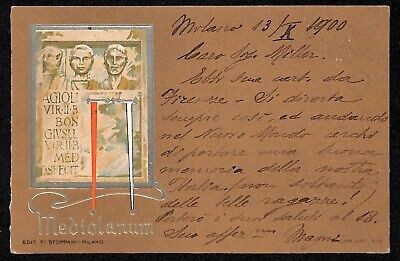 AGIOLI
VIR·II·B
BON
GIUS·L·L
VIR·II·B
MED
DSPECIT
Mediolanum
EDIT. F. STOPPANI - MILANO
Milano 13/X 1900
Caro Sig. Miller.
Ebbi sua carta da
Firenze - Si diverta
sempre così, ed andando
nel Nuovo Mondo cerchi
di portare una buona
memoria della nostra
Italia (non soltanto
delle belle ragazze!)
Porterò i suoi saluti al B.
Suo aff